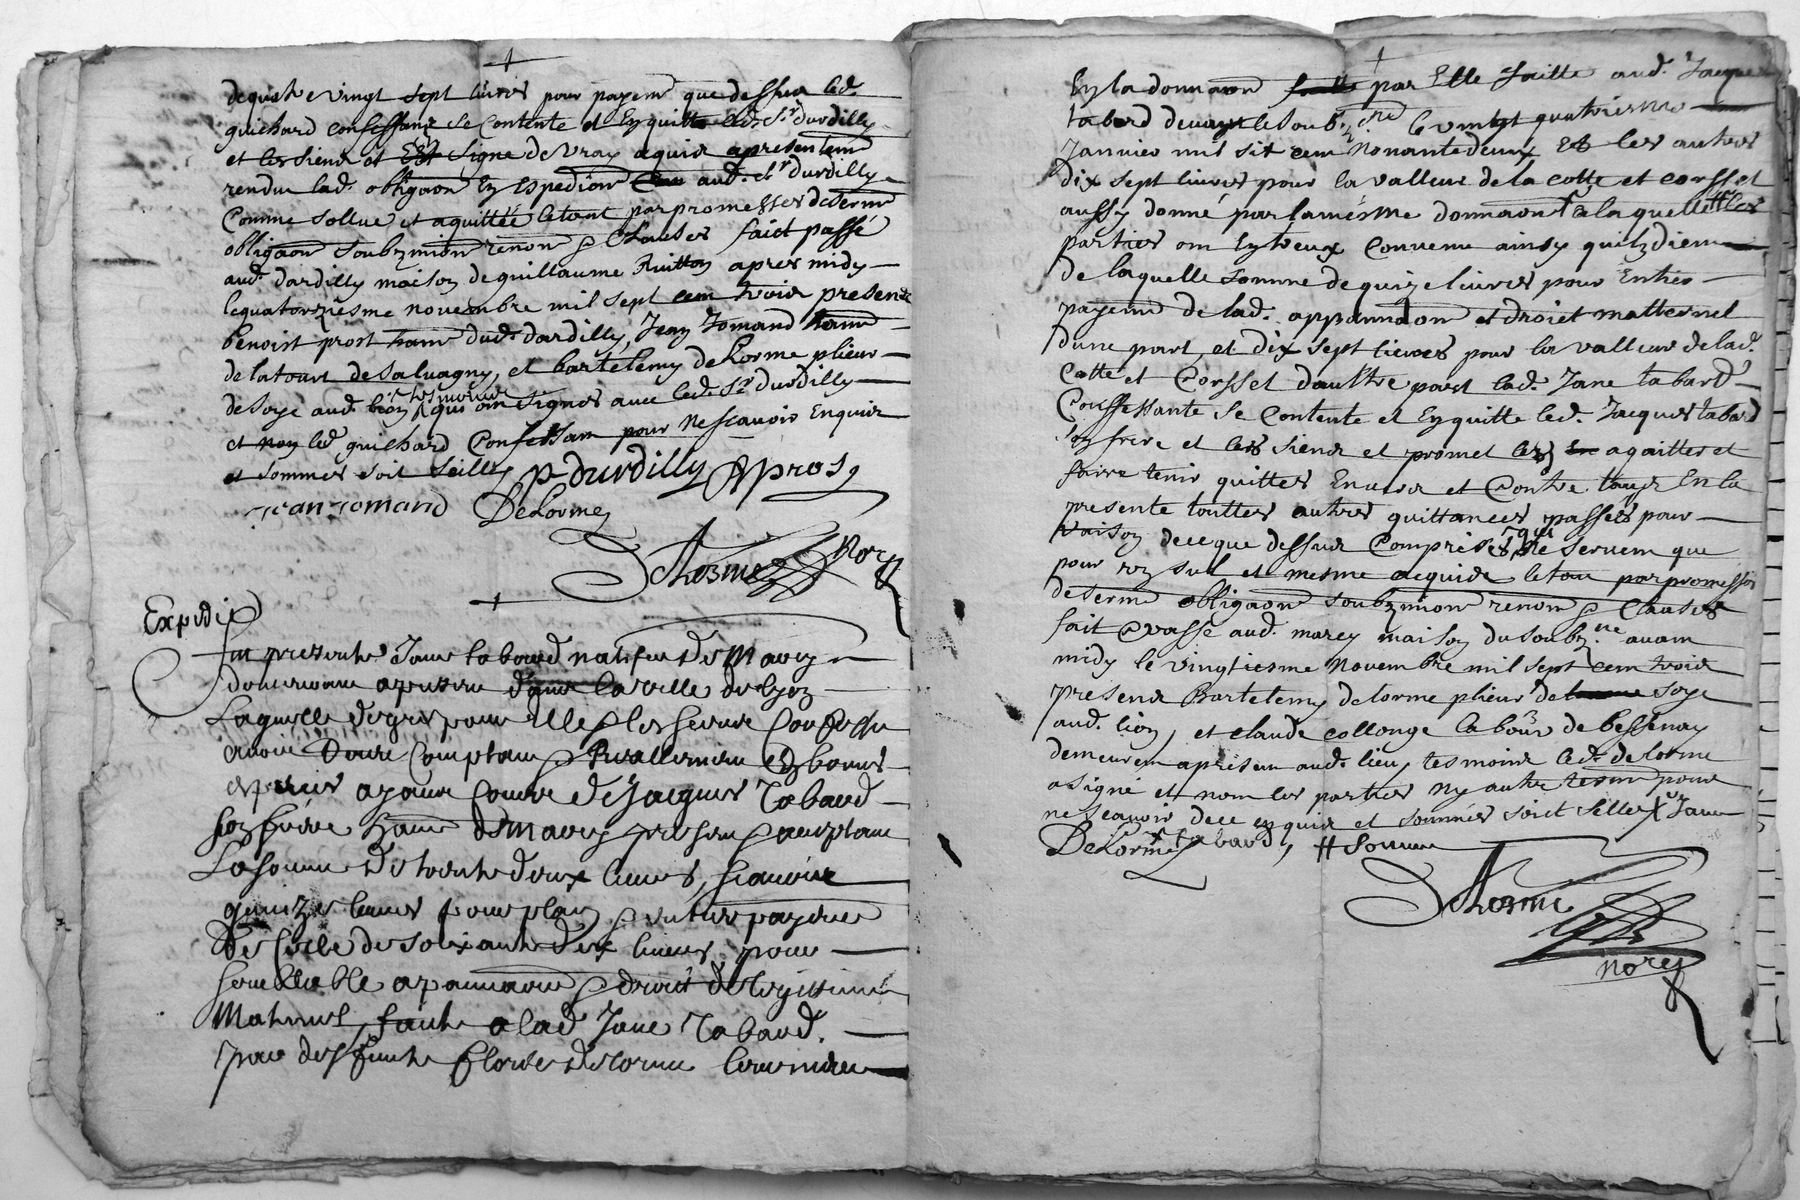 de quatre vingt sept livres pour payem que dessus led.
guichard confessant se contente et En quitte led. Sr durdilly
et les siens et Est signe de vray aquis apresentem
rendu lad. obligaon En Espedion aud. Sr durdilly
Comme sollue et aquittéé le tout par promesses de serm
obligaon soubzmion renon & Clauses faict passé
aud. dardilly maison de guillaume Ruitton apres midy
le quatorziesme novembre mil sept cem trois presens
benoist prost hanr dud. dardilly, Jean Jomand hanr
de latour de salvagny, et bartelemy deLorme plieur
de soye aud. lion tesmoins qui ont signes avec led. Sr durdilly
et non led. guichard Confessam pour ne scavoir Enquis
et sommes soit seelle p durdilly B pros
jean jomand DeLorme
Delhorme Nore
Expedié
Fut presente Jane tabard natifve de Marcy
demeurant apresem dans la ville de lyon
Laquelle de gre pour elle & les siens Confesse
avoir Heu Comptam & Reallemem En bonnes
especes ayans cours de Jacques Tabard
son frere hanr de Marcy presem & acceptam
La somme de trente deux livres, scavoir
quinze livres pour plain & entier payem
de Celle de soixante dix livres pour
semblable apannaon & droict de legitime
Maternel faicte a lad Jane Tabard.
par deffunte Florie delorme leur mere
En la donnaon par Elle faitte aud. Jacques
tabard devant le soubz.né le vingt quatriesme
Janvier mil six cem nonante deux Et les autres
dix sept livres pour la valleur de la cotte et corsset
aussy donné par la mesme donnaon a laquelle les
parties ont Entreux Convenu ainsy quilz diem
de laquelle somme de quinze livres pour Entier
payem de lad. appannaon et droict matternel
dune part, et dix sept livres pour la valleur de lad.
Cotte et Corsset d'aultre part lad. Jane tabard
Confessante se Contente et En quitte led. Jacques tabard
son frere et les siens et promet les en aquitter et
faire tenir quittes Envers et Contre tous En la
presente touttes autres quittances passes pour
raison dece que dessus Comprises, qui ne servem que
pour un sul et mesme acquis le tout par promesses
de serm obligaon soubzmion renon & Clauses
fait & passe aud. marcy maison du soubz.né avam
midy le vingtiesme Novembre mil sept cem trois
presens Bartelemy delorme plieur de soye
aud. lion, et claude collonge labour de bessenay
demeuram apresem aud. lieu, tesmoins led. delorme
a signé et nom les parties ny autre tesm pour
ne scavoir dece enquis et sommes soict sellé X Jane
DeLorme tabard, # somme
Delhorme
Nore